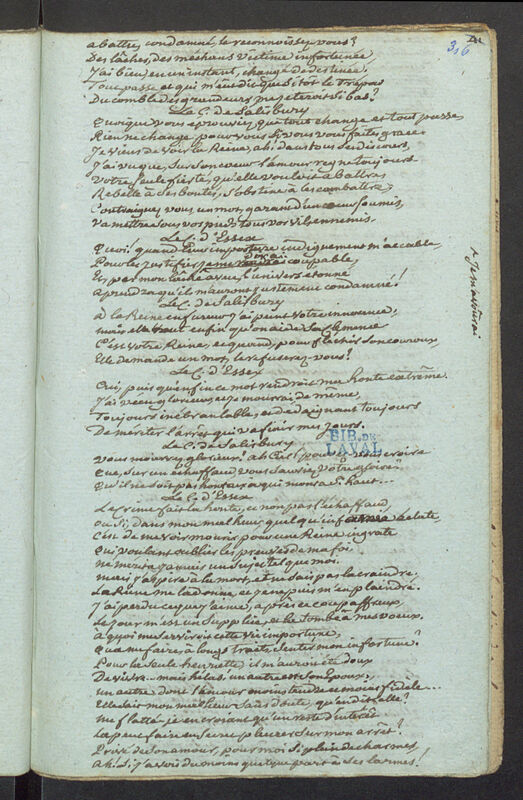 abattre, condamné, le reconnoissez vous?
Des lâches, des méchans victime infortunée
J'ai bien en un instant, changé de destinée
Tout passe, et qui m'eut dit que sitot le trépas
Du comble des grandeurs me jeteroit si bas?
Le C. de Salisbury
Quoique vous éprouviez que tout change et tout passe,
Rien ne change pour vous si vous vous faites grace.
Je viens de voir la Reine, ah! dans tous ses discours,
J'ai vu que, sur son coeur l'amour regne toujours
Votre seule fierté, qu'elle vouloit abattre
Rebelle à ses bontés, s'obstine à les combattre,
Contraignez vous, un mot, garand d'un coeur soumis,
Va mettre sous vos pieds tous vos vils ennemis.
Le C. d'Essex
Quoi! quand leur imposture indignement m'accable,
Pour les justifier, je me coupable,
Et, par mon lâche aveu, l'univers étonné
Aprendra qu'ils m'auront justement condamné!
+ Je m'avoûrai
Le C. de Salisbury
à la Reine en fureur j'ai peint votre innocence,
mais elle veut enfin qu'on aide sa clémence
C'est votre Reine, et quand, pour fléchir son couroux
Elle demande un mot, le refuserez vous?
Le C. d'Essex
Oui, puis qu'enfin ce mot rendroit ma honte extrême.
J'ai vécu glorieux, et je mourrai de même,
Toujours inébranlable, et dédaignant toujours
De mériter l'arrêt qui va finir mes jours.
Le C. de Salisbury
BIB. DE
LAVAL
vous mourrez glorieux! ah Ciel! pouvez vous croire
Que, sur un échaffaud vous sauviez votre gloire?
Qu'il ne soit pas honteux à qui monta si haut...
Le C. d'Essex
Le crime fait la honte, et non pas l'échaffaud,
Ou si, dans mon malheur, quelqu'infamie éclate,
C'est de me voir mourir pour une Reine ingrate
Qui voulant oublier les preuves de ma foi
ne mérita jamais un sujet tel que moi.
mais j'aspire à la mort, et ne sais pas la craindre.
La Reine me la donne, et je ne puis m'en plaindre.
J'ai perdu ce que j'aime, après ce coup affreux,
Le jour m'est un supplice, et la tombe à mes voeux.
à quoi me serviroit cette vie importune,
Qu'à me faire à longs traits, sentir mon infortune?
Pour la seule henriette, il m'auroit été doux
De vivre... mais hélas, un autre est son Epoux,
un autre dont l'amour moins tendre et moins fidele...
Elle sait mon malheur sans doute, qu'en dit elle?
me flattai-je en croyant qu'un reste d'intérêt
La peut faire en secret pleurer sur mon arrêt?
Privé de son amour, pour moi si plein de charmes,
ah! si j'avois du moins quelque part à ses larmes!